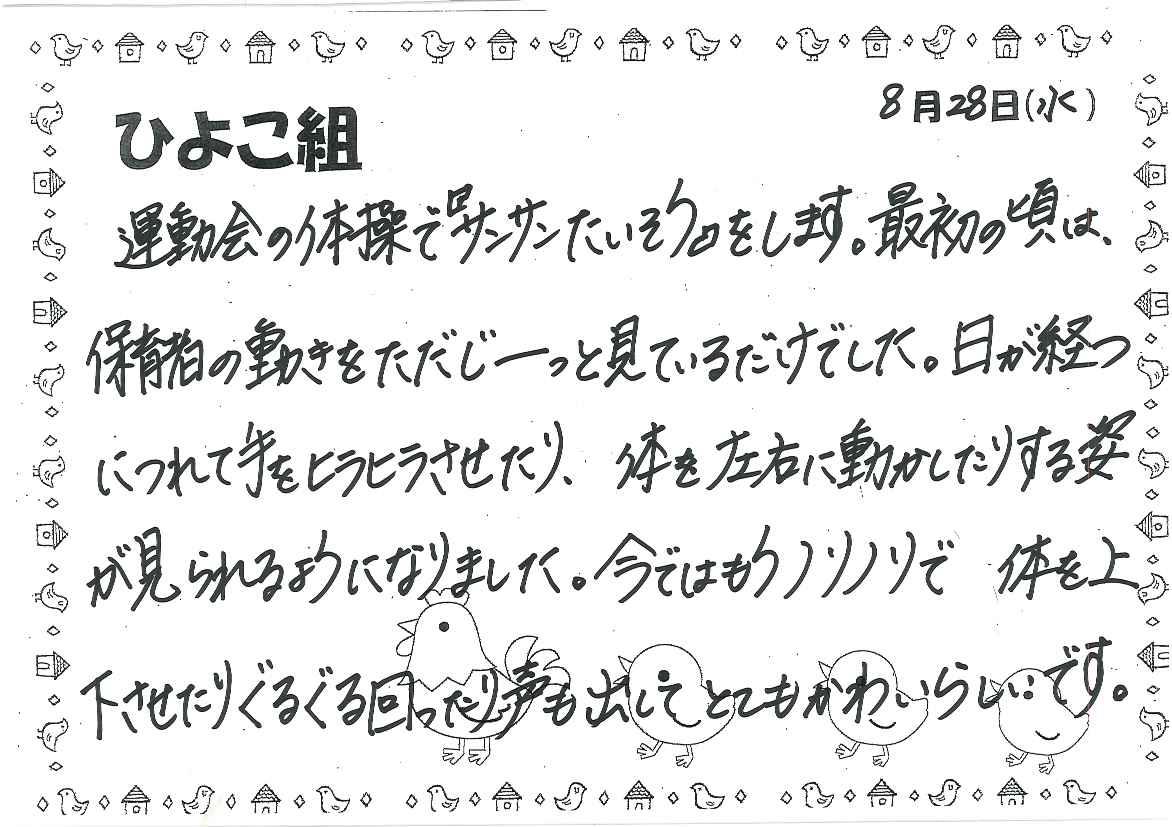 8月28日(水)
ひよこ組
運動会の体操で『サンサンたいそう』をします。最初の頃は、
保育者の動きをただじーっと見ているだけでした。日が経つ
につれて手をヒラヒラさせたり、体を左右に動かしたりする姿
が見られるようになりました。今ではもうノリノリで 体を上
下させたりぐるぐる回ったり声も出してとてもかわいらしいです。